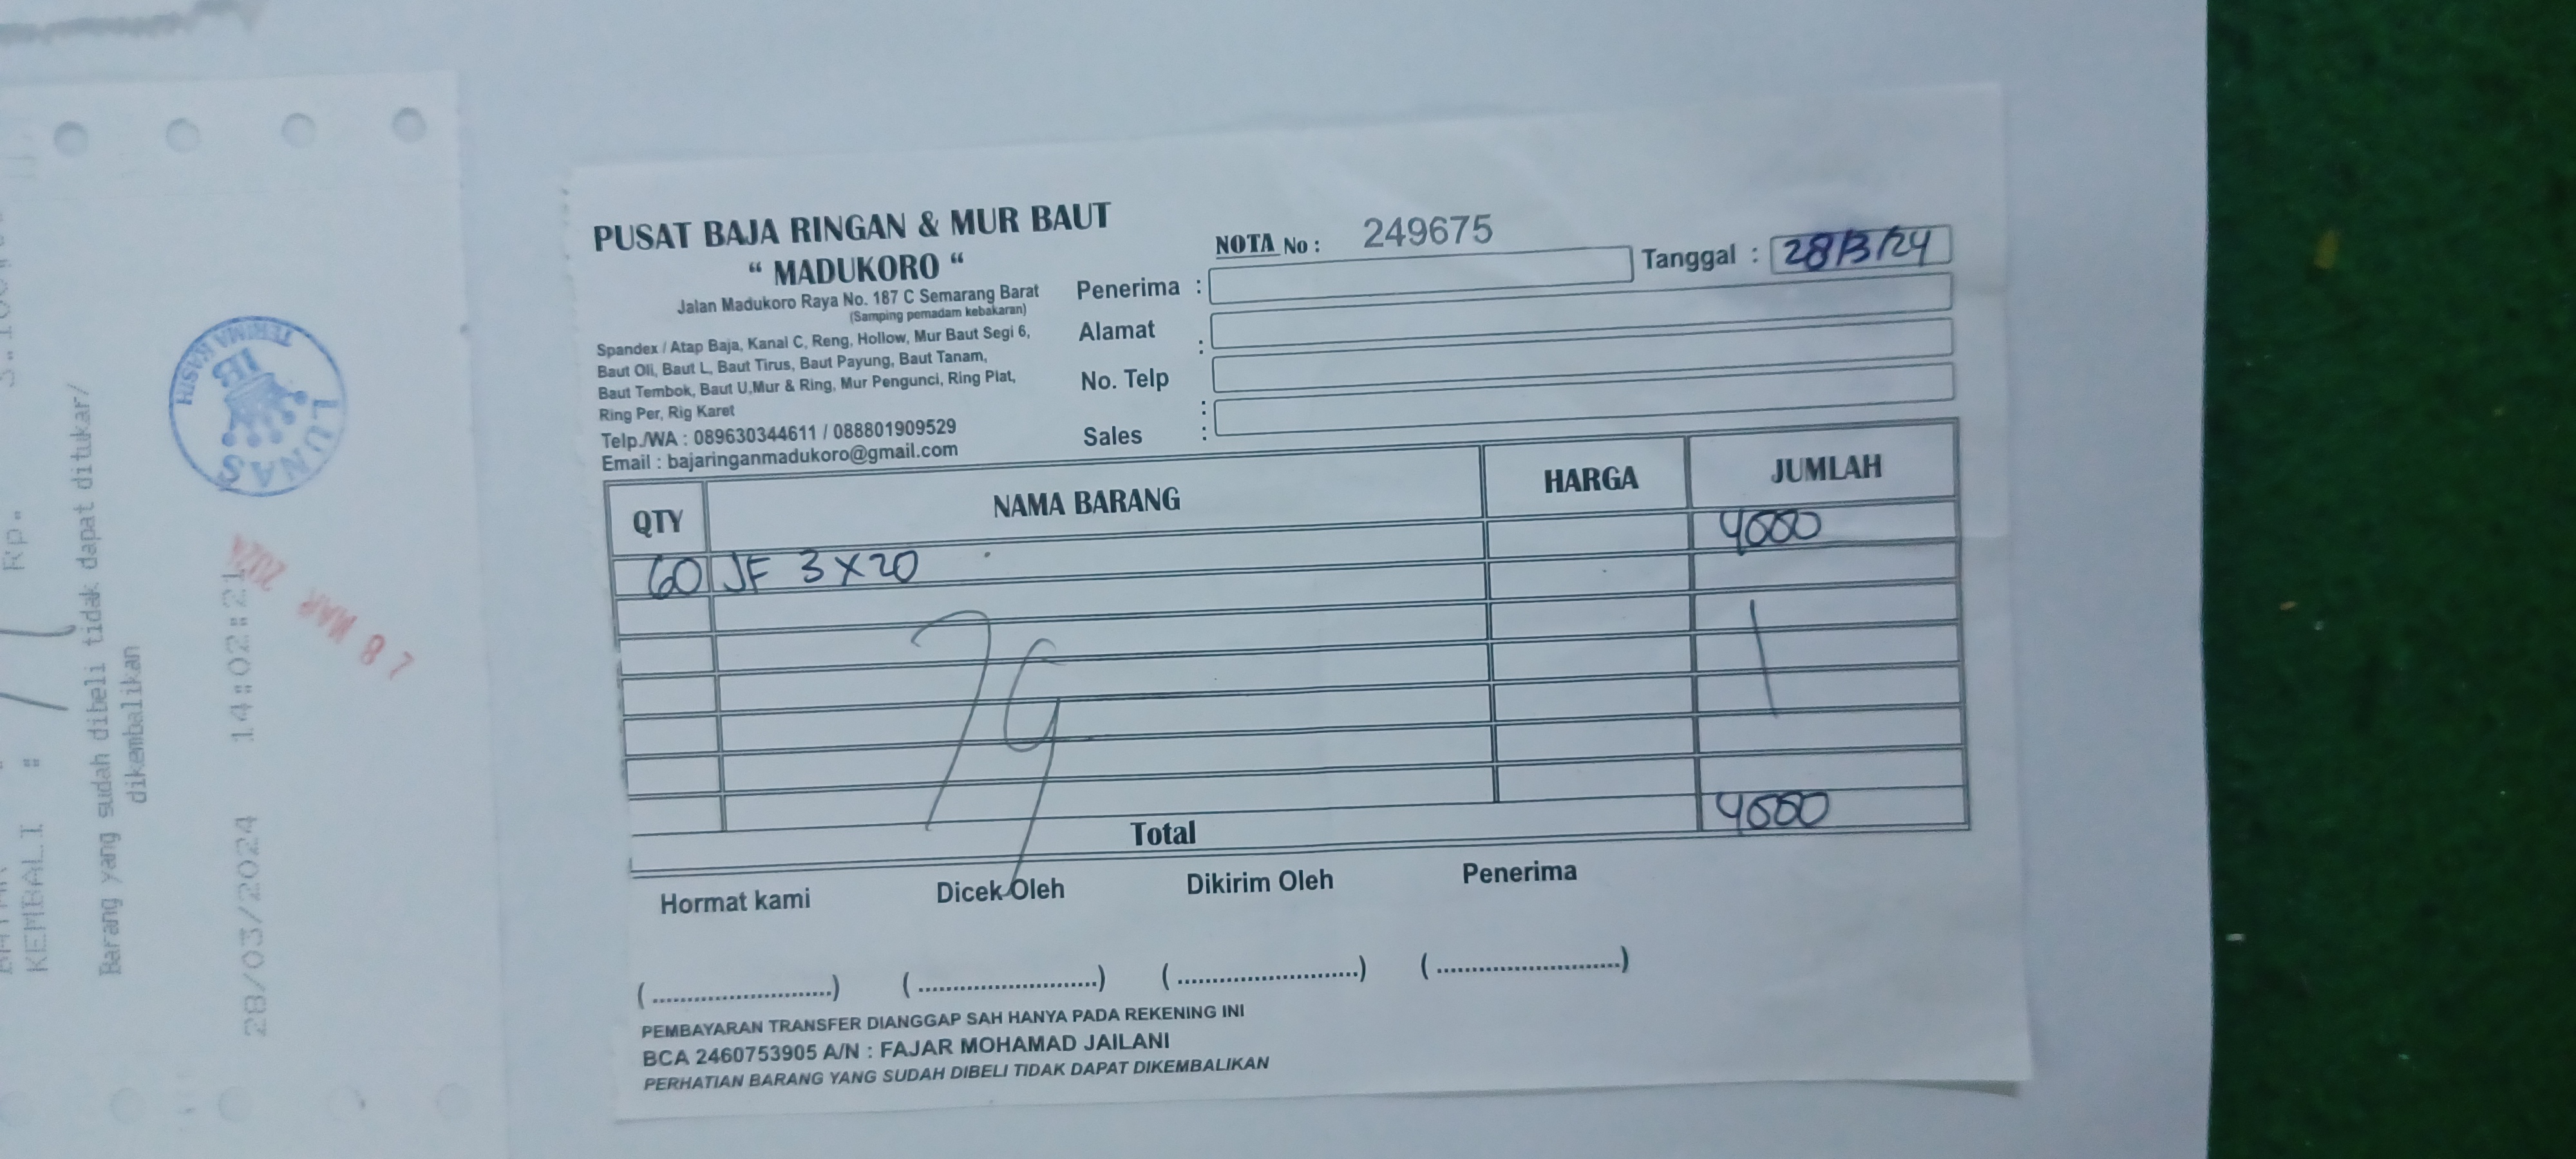 PUSAT BAJA RINGAN & MUR BAUT
“ MADUKORO “
Jalan Madukoro Raya No. 187 C Semarang Barat
(Samping pemadam kebakaran)
Spandex / Atap Baja, Kanal C, Reng, Hollow, Mur Baut Segi 6,
Baut Oli, Baut L, Baut Tirus, Baut Payung, Baut Tanam,
Baut Tembok, Baut U,Mur & Ring, Mur Pengunci, Ring Plat,
Ring Per, Rig Karet
Telp./WA : 089630344611 / 088801909529
Email : bajaringanmadukoro@gmail.com
NOTA No : 249675
Tanggal : 28/3/24
Penerima :
Alamat :
No. Telp :
Sales :
QTY NAMA BARANG HARGA JUMLAH
60 JF 3 x 20 4000
Total 4000
Hormat kami Dicek Oleh Dikirim Oleh Penerima
(............................) (............................) (............................) (............................)
PEMBAYARAN TRANSFER DIANGGAP SAH HANYA PADA REKENING INI
BCA 2460753905 A/N : FAJAR MOHAMAD JAILANI
PERHATIAN BARANG YANG SUDAH DIBELI TIDAK DAPAT DIKEMBALIKAN
KEMBALI : Rp.
Barang yang sudah dibeli tidak dapat ditukar/
dikembalikan
28/03/2024 14:02:21
28 MAR 2024
LUNAS
IB
TERIMA KASIH